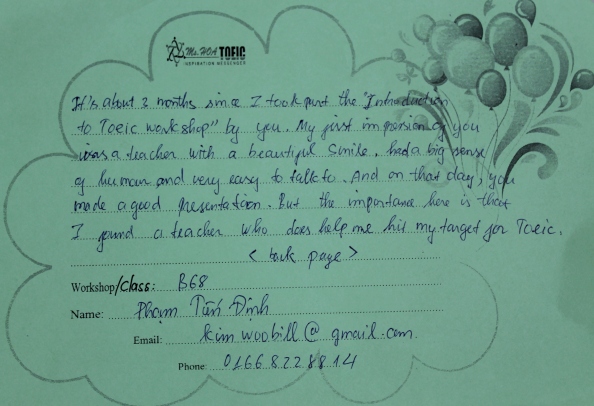 Ms. HOA TOEIC
INSPIRATION MESSENGER
It's about 3 months since I took part the "Introduction
to Toeic workshop" by you. My first impression of you
was a teacher with a beautiful smile, had a big sense
of human and very easy to talk to. And on that day, you
made a good presentation. But the importance here is that
I found a teacher who does help me hit my target for Toeic.
< back page >
Workshop/Class: B68
Name: Phạm Tấn Định
Email: kimwoobill@gmail.com
Phone: 01668228814